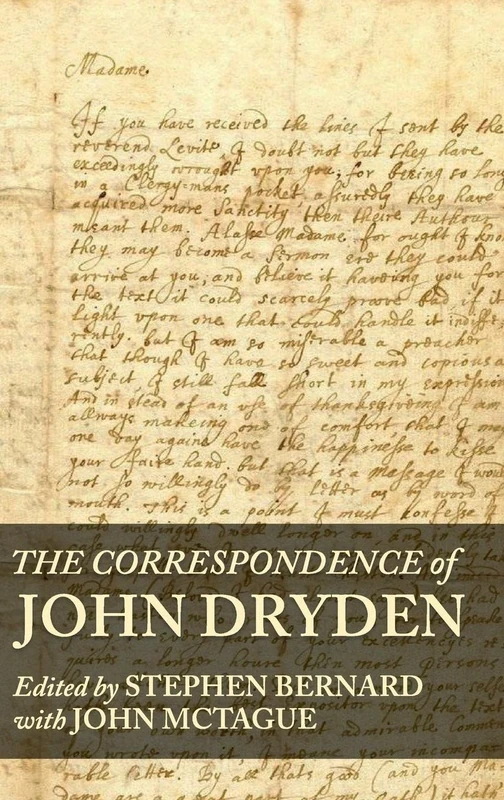 Madame.
If you have received the lines I sent by the
reverend Levite, I doubt not but they have
exceedingly wrought vpon you; for beeing so long
in a Clergy-mans pocket, assuredly they have
acquired more Sanctity then theire Authour
meant them. Alasse Madame for ought I kno
they may become a Sermon ere they could
arrive at you; and believe it haveing you fo
the text it could scarcely proove bad, if it
light vpon one that could handle it indiffe-
rently. but I am so miserable a preacher
that though I have so sweet and copious a
subject, I still fall short in my expression
And in stead of an vse of thanksgiving I am
allways makeing one of comfort that I ma
one day againe have the happinesse to kisse
your faire hand. but that is a Message I wou
not so willingly do by letter as by word o
mouth. This is a point I must konfesse I
could willingly dwell longer on, and in this
THE CORRESPONDENCE of
JOHN DRYDEN
quires a longer houre then most persons
Edited by STEPHEN BERNARD
with JOHN MCTAGUE
you wrote vpon it, I meane your incompa
rable letter. By all thats good (and you Ma